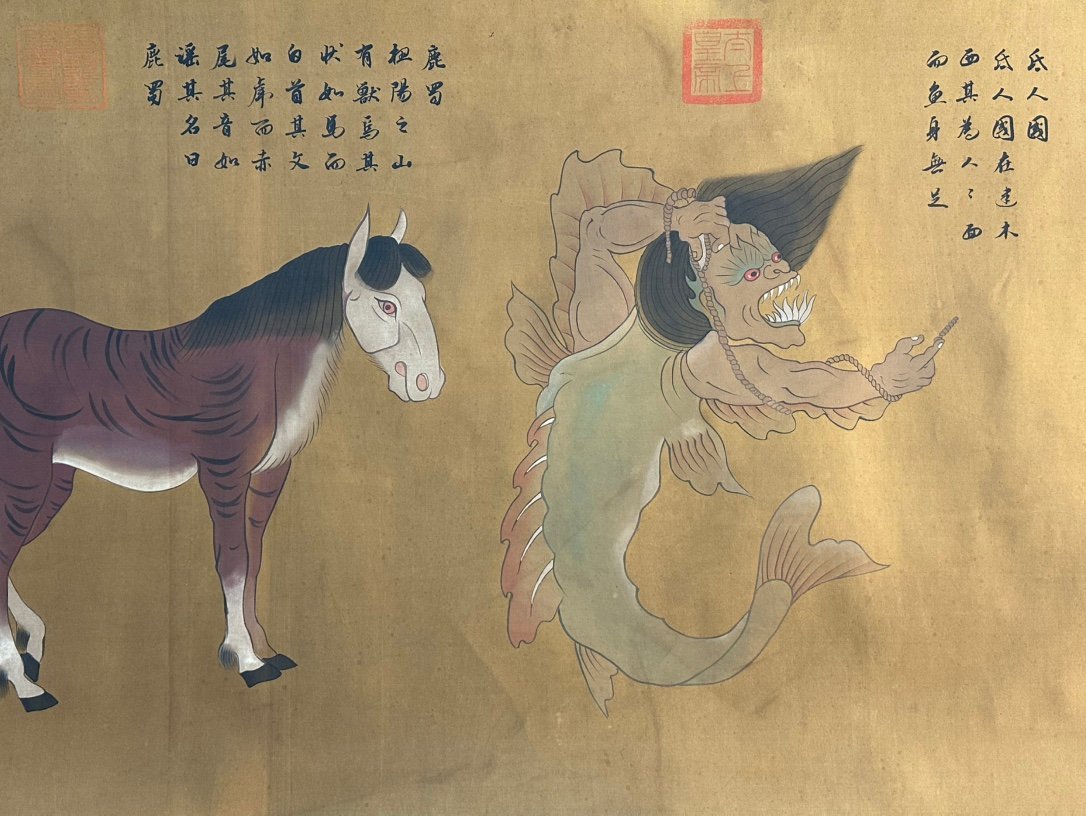 氐人國
氐人國在建木
西其為人〻面
而魚身無足
太上
皇帝
鹿蜀
杻陽之山
有獸焉其
狀如馬而
白首其文
如虎而赤
尾其音如
謠其名曰
鹿蜀